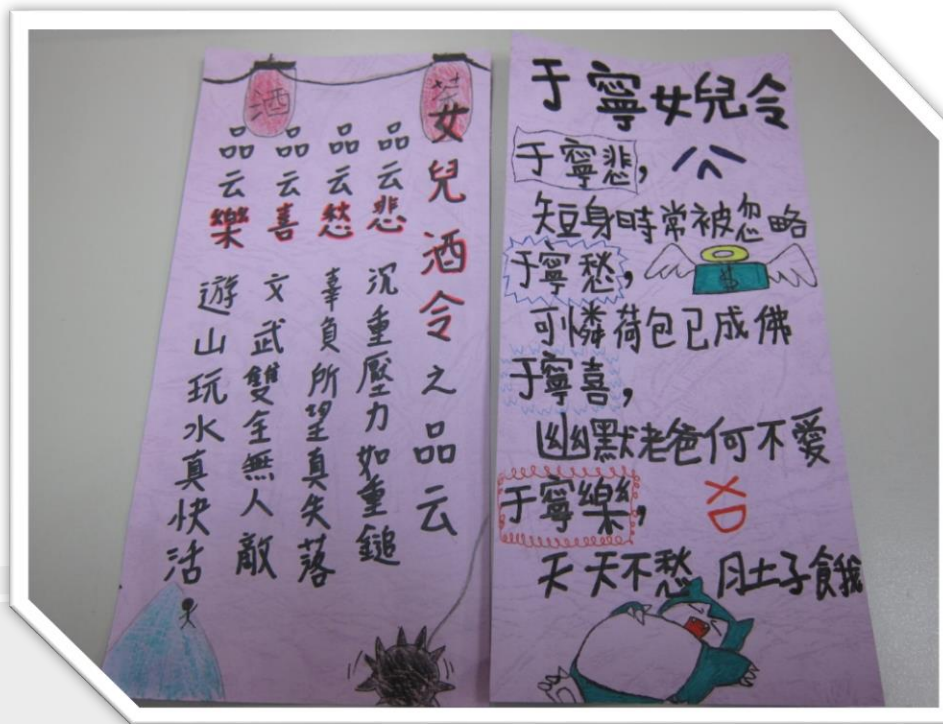 酒
女兒酒令之品云
品云悲 沉重壓力如重鎚
品云愁 辜負所望真失落
品云喜 文武雙全無人敵
品云樂 遊山玩水真快活
于寧女兒令
于寧悲,
短身時常被忽略
于寧愁, $
可憐荷包已成佛
于寧喜,
幽默老爸何不愛
于寧樂, XD
天天不愁 肚子餓